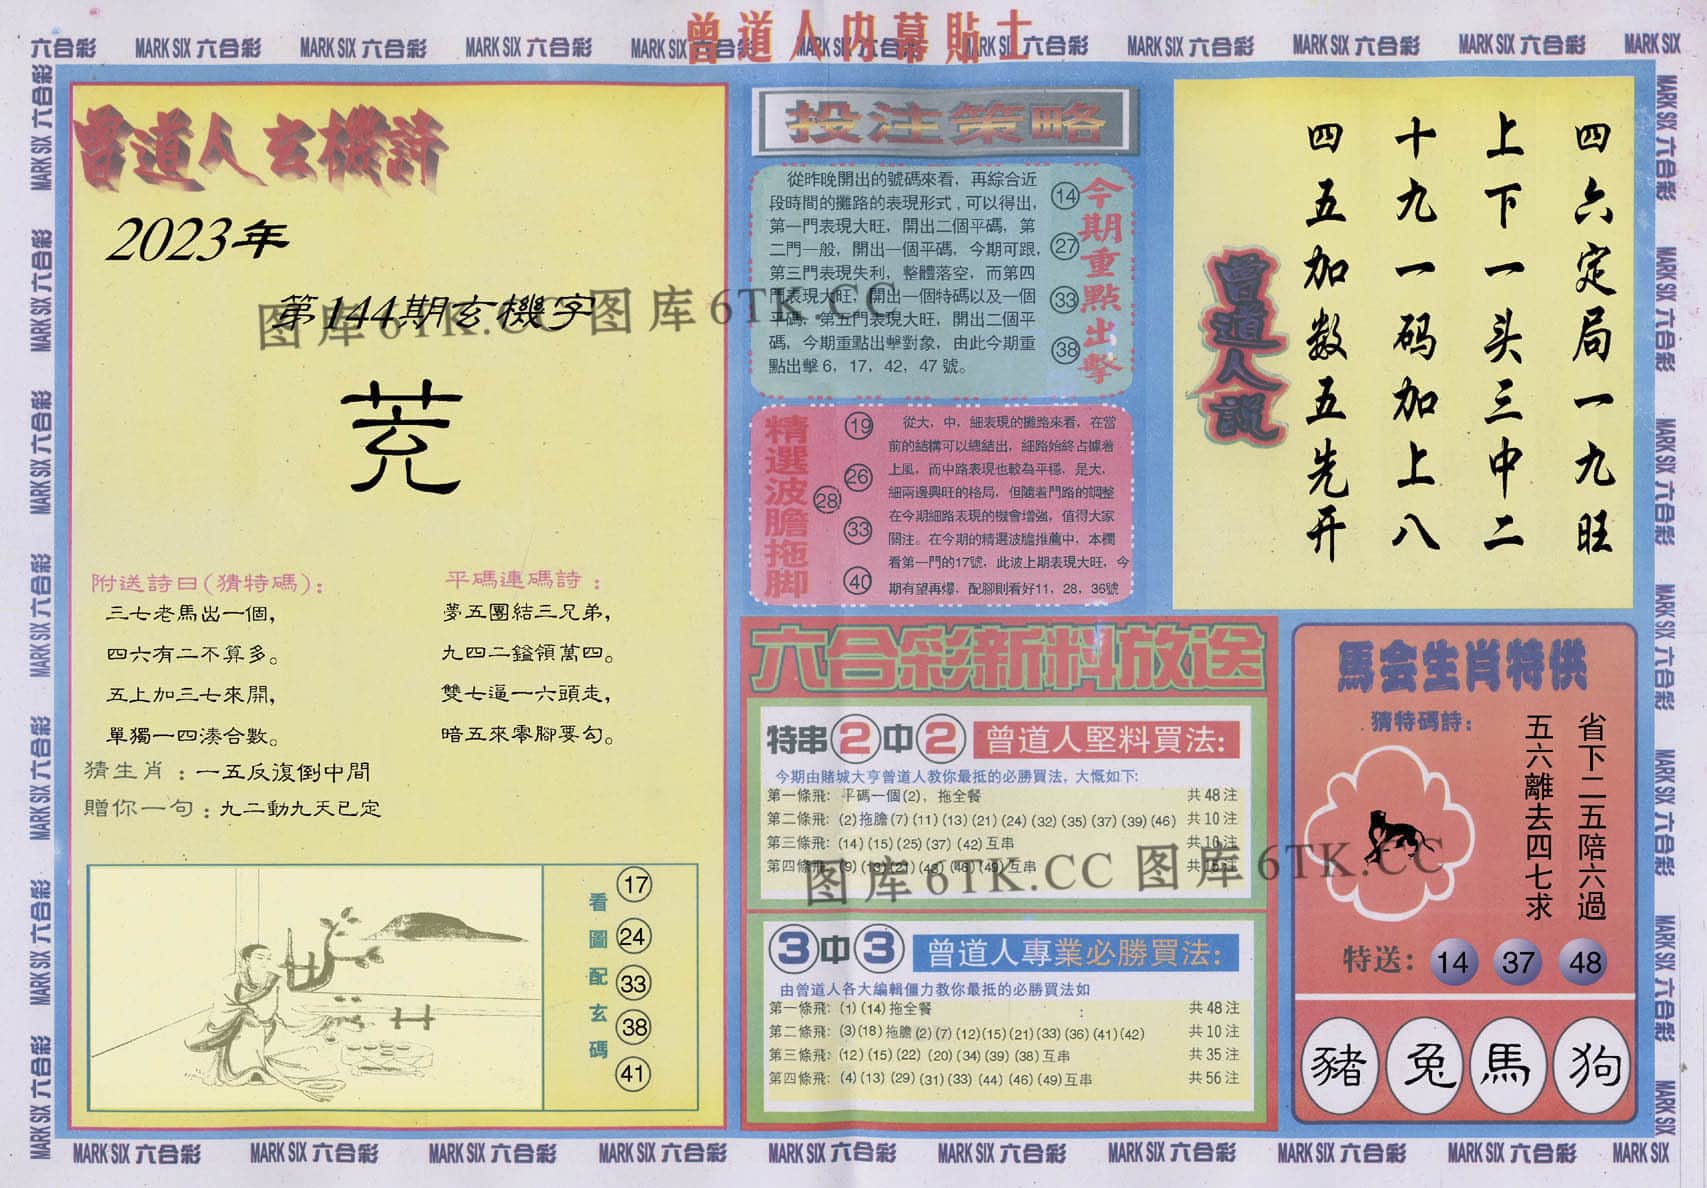 曾道人内幕貼士
六合彩 MARK SIX 六合彩 MARK SIX 六合彩 MARK SIX 六合彩 MARK SIX 六合彩 MARK SIX 六合彩 MARK SIX 六合彩 MARK SIX 六合彩 MARK SIX 六合彩 MARK SIX 六合彩 MARK SIX
曾道人玄機詩
2023年
第144期玄機字
附送詩曰(猜特碼):
三七老馬出一個,
四六有二不算多。
五上加三七來開,
單獨一四湊合數。
平碼連碼詩:
夢五團結三兄弟,
九四二鎰領萬四。
雙七逼一六頭走,
暗五來零腳要勾。
猜生肖:一五反復倒中間
贈你一句:九二動九天已定
看圖配玄碼
17
24
33
38
41
投注策略
從昨晚開出的號碼來看，再綜合近
段時間的攤路的表現形式，可以得出，
第一門表現大旺，開出二個平碼，第
二門一般，開出一個平碼，今期可跟，
第三門表現失利，整體落空，而第四
門表現大旺，開出一個特碼以及一個
平碼，第五門表現大旺，開出二個平
碼，今期重點出擊對象，由此今期重
點出擊6，17，42，47號。
今期重點出擊
14
27
33
38
精選波膽拖脚
19
26
28
33
40
從大，中，細表現的攤路來看，在當
前的結構可以總結出，細路始終占據着
上風，而中路表現也較為平穩，是大，
細兩邊興旺的格局，但隨着門路的調整
在今期細路表現的機會增強，值得大家
關注。在今期的精選波膽推薦中，本欄
看第一門的17號，此波上期表現大旺，今
期有望再爆，配腳則看好11，28，36號
曾道人說
四六定局一九旺
上下一头三中二
十九一码加上八
四五加数五先开
六合彩新料放送
特串2中2 曾道人堅料買法:
今期由賭城大亨曾道人教你最抵的必勝買法，大慨如下:
第一條飛: 平碼一個(2)，拖全餐 共48注
第二條飛: (2)拖膽(7)(11)(13)(21)(24)(32)(35)(37)(39)(46) 共10注
第三條飛: (14)(15)(25)(37)(42)互串 共10注
第四條飛: (9)(13)(21)(43)(46)(49)互串 共15注
3中3 曾道人專業必勝買法:
由曾道人各大編輯僵力教你最抵的必勝買法如
第一條飛: (1)(14)拖全餐 共48注
第二條飛: (3)(18)拖膽(2)(7)(12)(15)(21)(33)(36)(41)(42) 共10注
第三條飛: (12)(15)(22)(20)(34)(39)(38)互串 共35注
第四條飛: (4)(13)(29)(31)(33)(44)(46)(49)互串 共56注
馬会生肖特供
猜特碼詩:
省下二五陪六過
五六離去四七求
特送: 14 37 48
豬 兔 馬 狗
图库6TK.CC 图库6TK.CC
图库6TK.CC 图库6TK.CC
MARK SIX 六合彩 MARK SIX 六合彩 MARK SIX 六合彩 MARK SIX 六合彩 MARK SIX 六合彩 MARK SIX 六合彩 MARK SIX 六合彩 MARK SIX 六合彩 MARK SIX 六合彩 MARK SIX